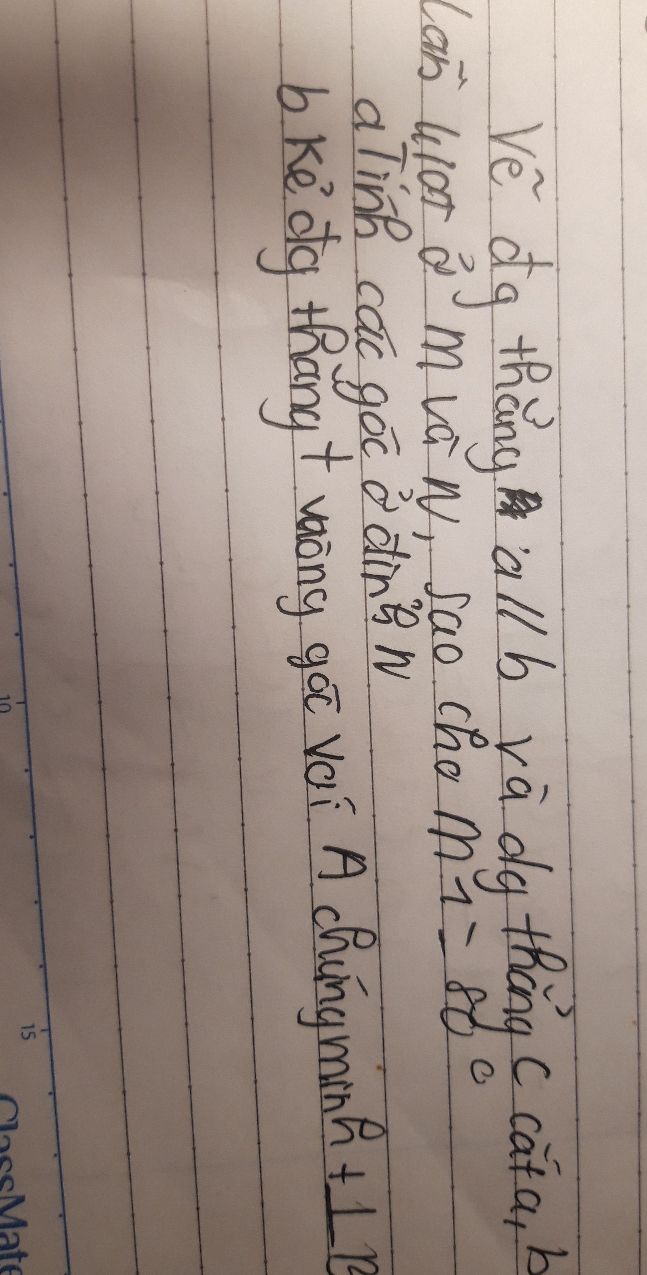 Vẽ đg thẳng a // b và đg thẳng c cắt a, b
lần lượt ở m và N, sao cho m1 = 80°
a Tính các góc ở đỉnh N
b Kẻ đg thẳng t vuông góc với A chứng minh t ⊥ b
10
15
ClassMate